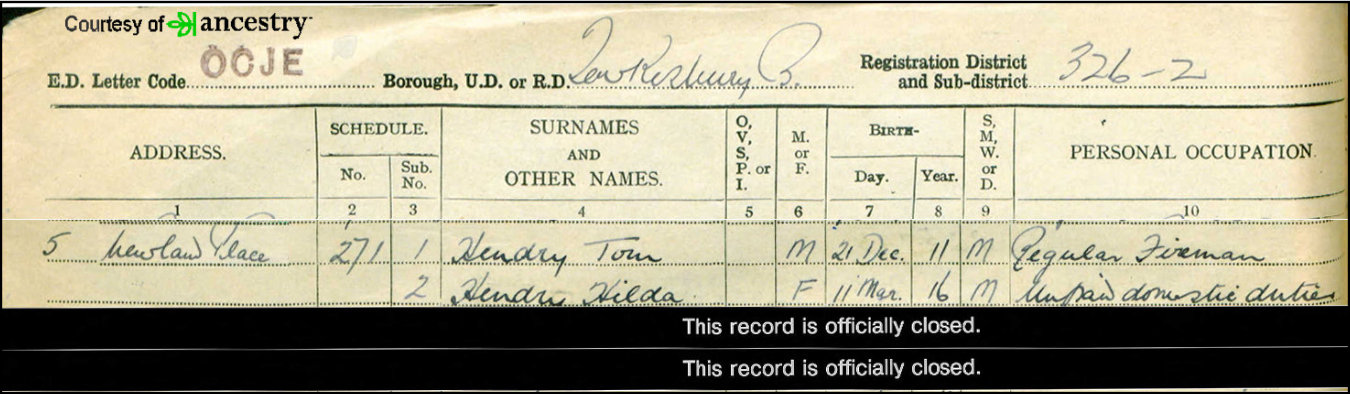 Courtesy of ancestry
E.D. Letter Code OCJE Borough, U.D. or R.D. Tewkesbury B. Registration District and Sub-district 326-2
ADDRESS. SCHEDULE. No. Sub. No. SURNAMES AND OTHER NAMES. O, V, S, P. or I. M. or F. BIRTH- Day. Year. S, M, W. or D. PERSONAL OCCUPATION.
1 2 3 4 5 6 7 8 9 10
5 Newland Place 271 1 Hendry Tom M 21 Dec. 11 M Regular Fireman
2 Hendry Hilda F 11 Mar. 16 M Unpaid domestic duties
This record is officially closed.
This record is officially closed.